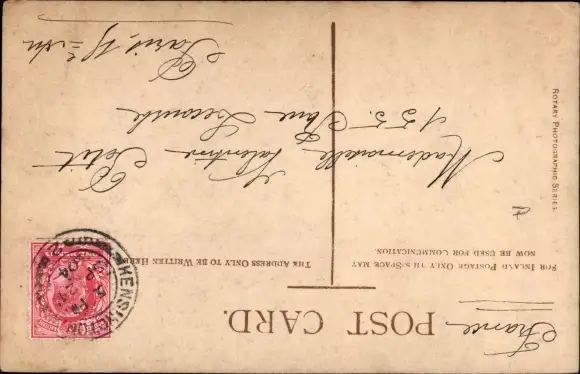 POST CARD.
France
FOR INLAND POSTAGE ONLY THIS SPACE MAY
NOW BE USED FOR COMMUNICATION.
THE ADDRESS ONLY TO BE WRITTEN HERE
KENSINGTON
Mademoiselle Valentine Petit
155. Rue
Paris, 18
ROTARY PHOTOGRAPHIC SERIES.